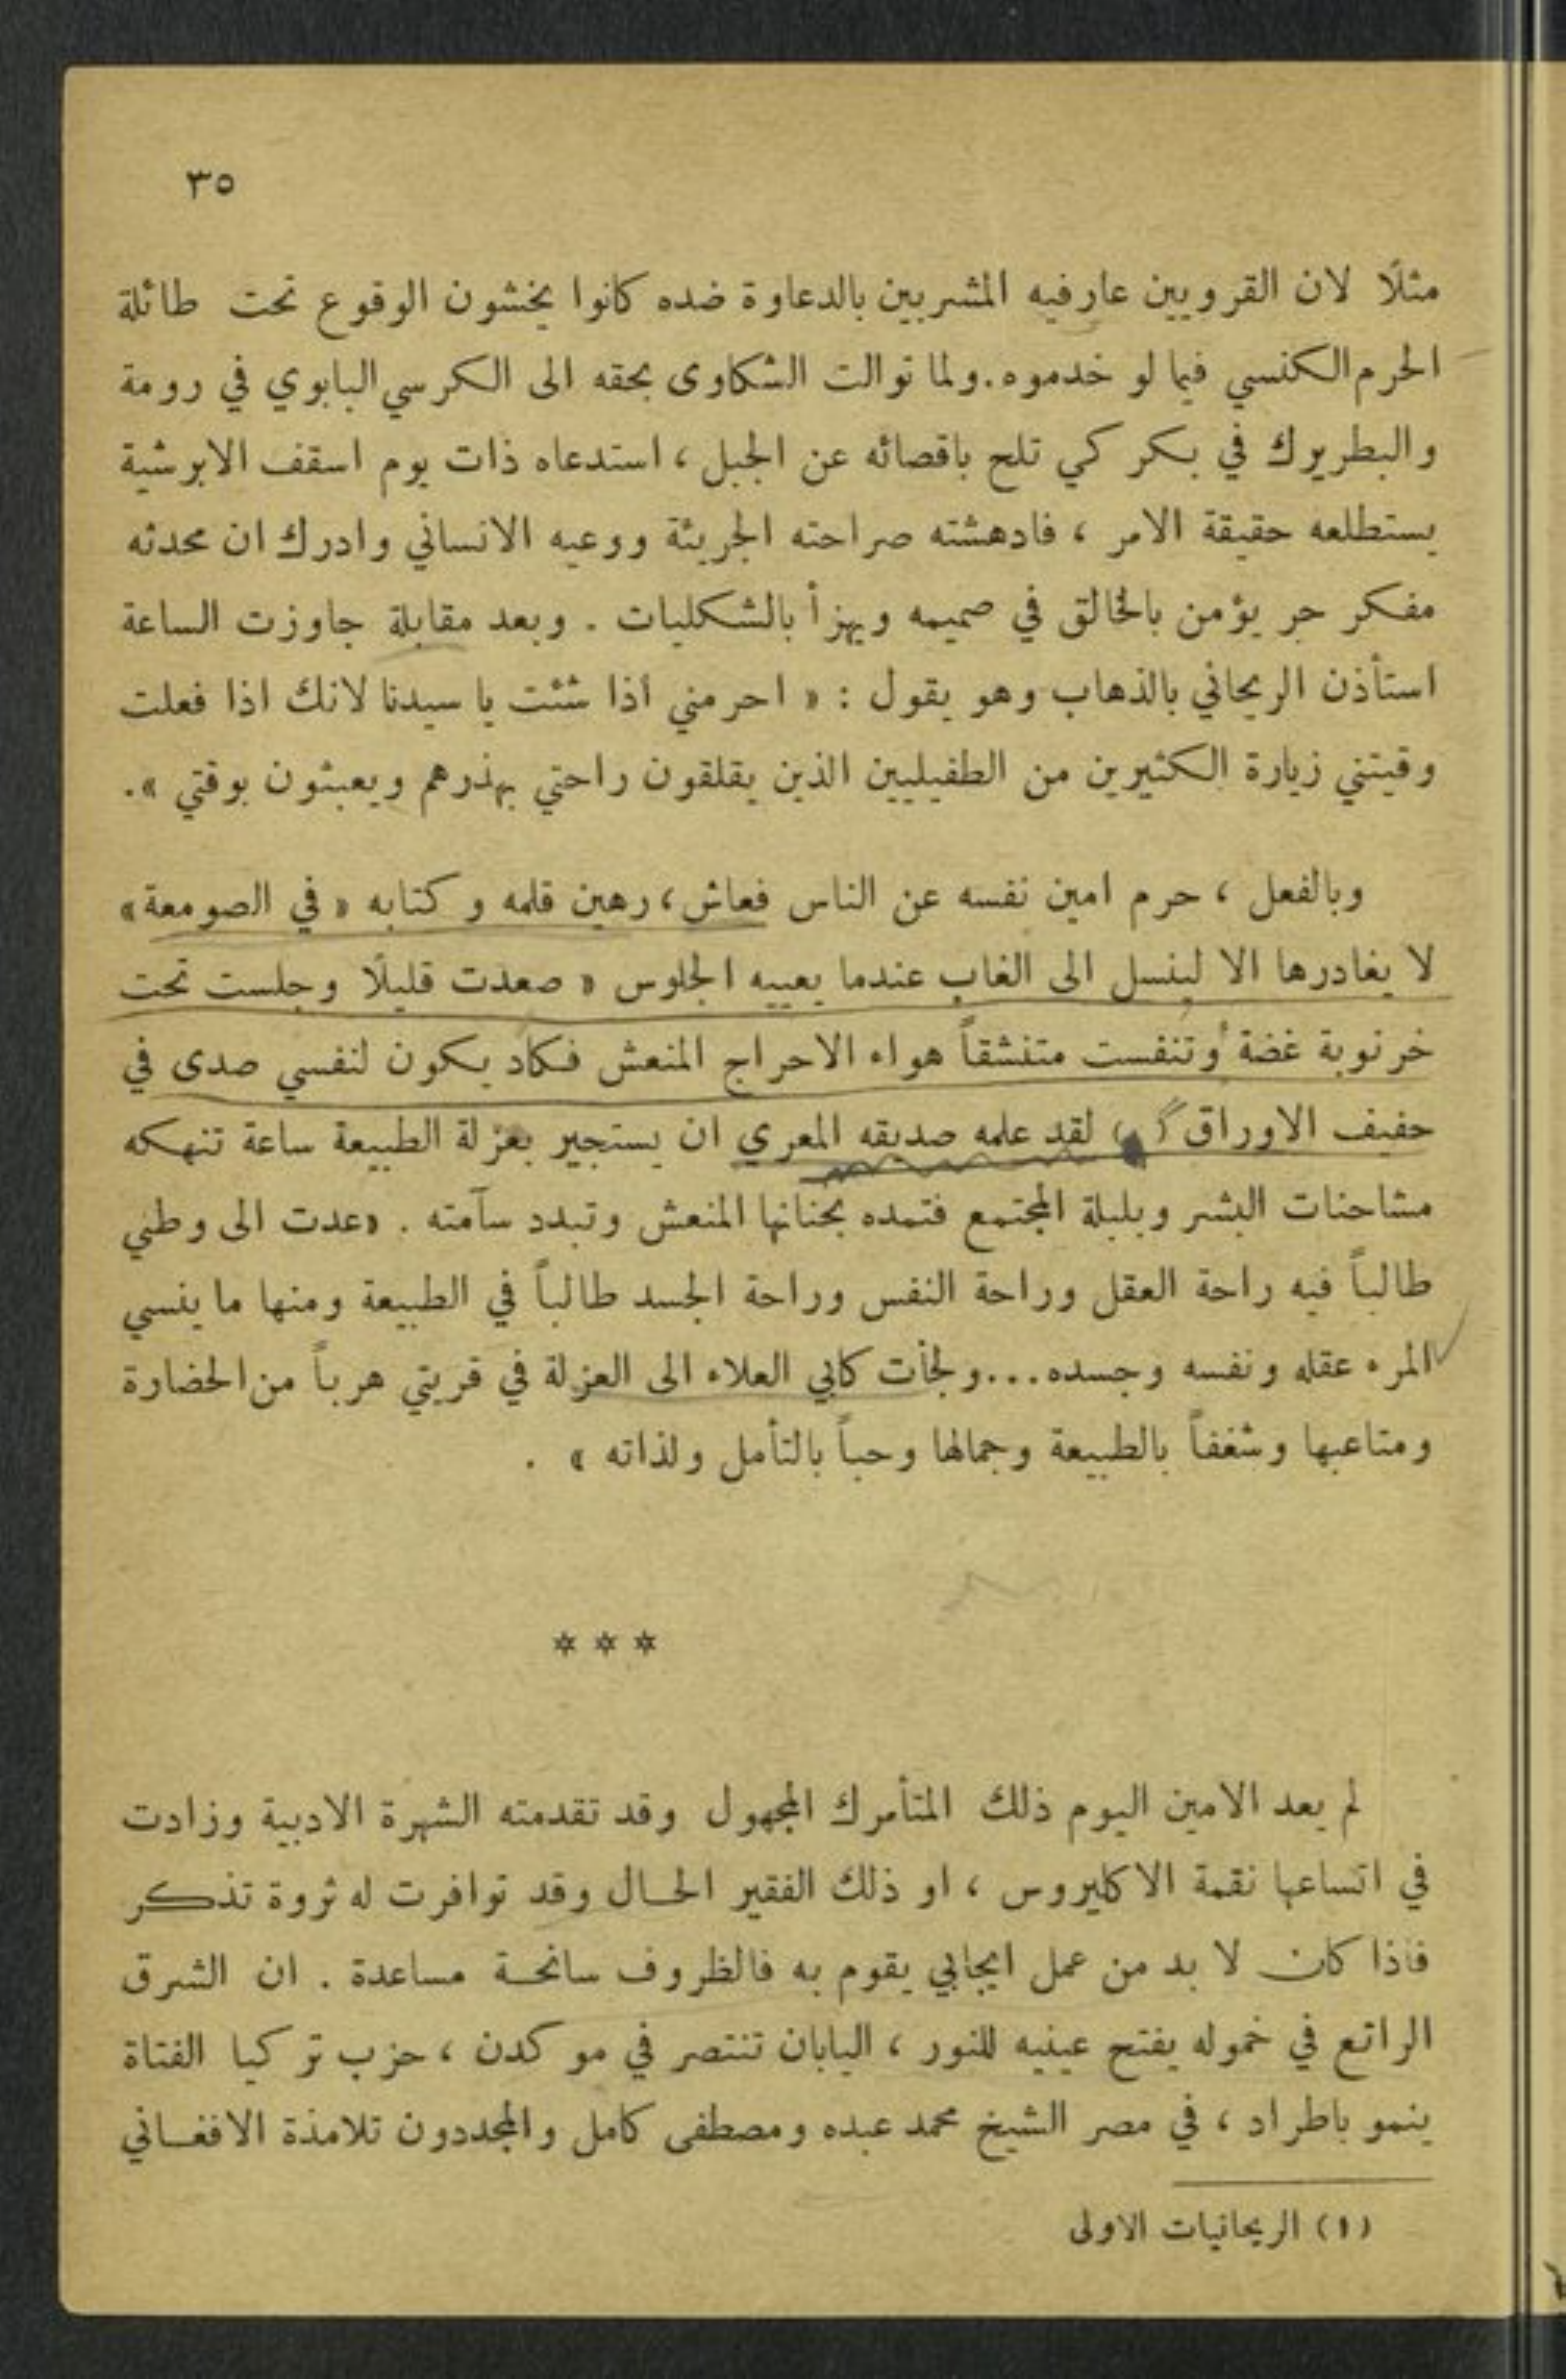 ٣٥
مثلًا لان القرويين عارفيه المشربين بالدعاوة ضده كانوا يخشون الوقوع تحت طائلة
الحرم الكنسي فيما لو خدموه. ولما توالت الشكاوى بحقه الى الكرسي البابوي في رومة
والبطريرك في بكركي تلح باقصائه عن الجبل ، استدعاه ذات يوم اسقف الابرشية
يستطلعه حقيقة الامر ، فادهشته صراحته الجريئة ووعيه الانساني وادرك ان محدثه
مفكر حر يؤمن بالخالق في صميمه ويهزأ بالشكليات . وبعد مقابلة جاوزت الساعة
استأذن الريحاني بالذهاب وهو يقول : « احرمني اذا شئت يا سيدنا لانك اذا فعلت
وقيتني زيارة الكثيرين من الطفيليين الذين يقلقون راحتي بهذرهم ويعبثون بوقتي ».
وبالفعل ، حرم امين نفسه عن الناس فعاش ، رهين قلمه وكتابه « في الصومعة »
لا يغادرها الا لينسل الى الغاب عندما يعييه الجلوس « صعدت قليلًا وجلست تحت
خرنوبة غضة وتنفست متنشقاً هواء الاحراج المنعش فكاد يكون لنفسي صدى في
حفيف الاوراق » لقد علمه صديقه المعري ان يستجير بعزلة الطبيعة ساعة تنهكه
مشاحنات البشر وبلبلة المجتمع فتمده بحنانها المنعش وتبدد سآمته . «عدت الى وطني
طالباً فيه راحة العقل وراحة النفس وراحة الجسد طالباً في الطبيعة ومنها ما ينسي
المرء عقله ونفسه وجسده... ولجأت كابي العلاء الى العزلة في قريتي هرباً من الحضارة
ومتاعبها وشغفاً بالطبيعة وجمالها وحباً بالتأمل ولذاته » .
* * *
لم يعد الامين اليوم ذلك المتأمرك المجهول وقد تقدمته الشهرة الادبية وزادت
في اتساعها نقمة الاكليروس ، او ذلك الفقير الحال وقد توافرت له ثروة تذكر
فاذا كان لا بد من عمل ايجابي يقوم به فالظروف سانحة مساعدة . ان الشرق
الراتع في خموله يفتح عينيه للنور ، اليابان تنتصر في موكدن ، حزب تركيا الفتاة
ينمو باطراد ، في مصر الشيخ محمد عبده ومصطفى كامل والمجددون تلامذة الافغاني
(١) الريحانيات الاولى